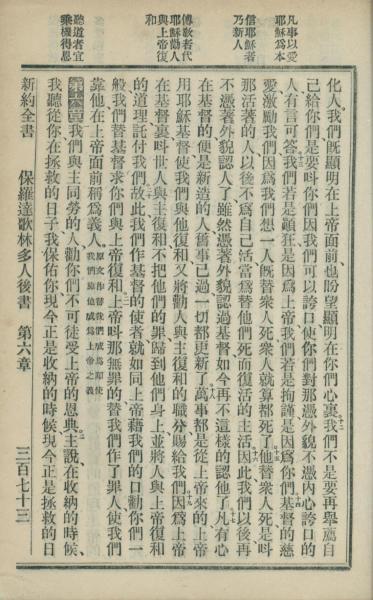 凡事以愛
耶穌為本
信耶穌者
乃新人
傳敎者代
耶穌勸人
與上帝復
和
聽道者宜
乘機得恩
化人我們旣顯明在上帝面前也盼望顯明在你們心裏我們不是要再舉薦自
己給你們是要呌你們因我們可以誇口使你們對那憑外貌不憑內心誇口的
人有言可答我們若是顚狂是因爲上帝我們若是拘謹是因爲你們基督的慈
愛激勵我們因爲我們想一人旣替衆人死衆人就算都死了他替衆人死是呌
那活著的人以後不爲自己活當爲替他們死而復活的主活因此我們以後再
不憑著外貌認人了雖然憑著外貌認過基督如今再不這樣的認他了凡有心
在基督的便是新造的人舊事已過一切都更新了萬事都是從上帝來的上帝
用耶穌基督使我們與他復和又將勸人與主復和的職分賜給我們因爲上帝
在基督裏呌世人與主復和不把他們的罪歸到他們身上並將人與主復和
的道理託付我們故此我們作基督的使者就如同上帝藉我們的口勸你們一
般我們替基督求你們與上帝復和上帝呌那無罪的替我們作了罪人使我們
靠他在上帝面前稱爲義人原文作替我們成爲罪使我們藉他成爲上帝之義
第六章我們與主同勞的人勸你們不可徒受上帝的恩典主說在收納的時候
我聽從你在拯救的日子我保佑你現今正是收納的時候現今正是拯救的日
新約全書 保羅達哥林多人後書 第六章 三百七十三